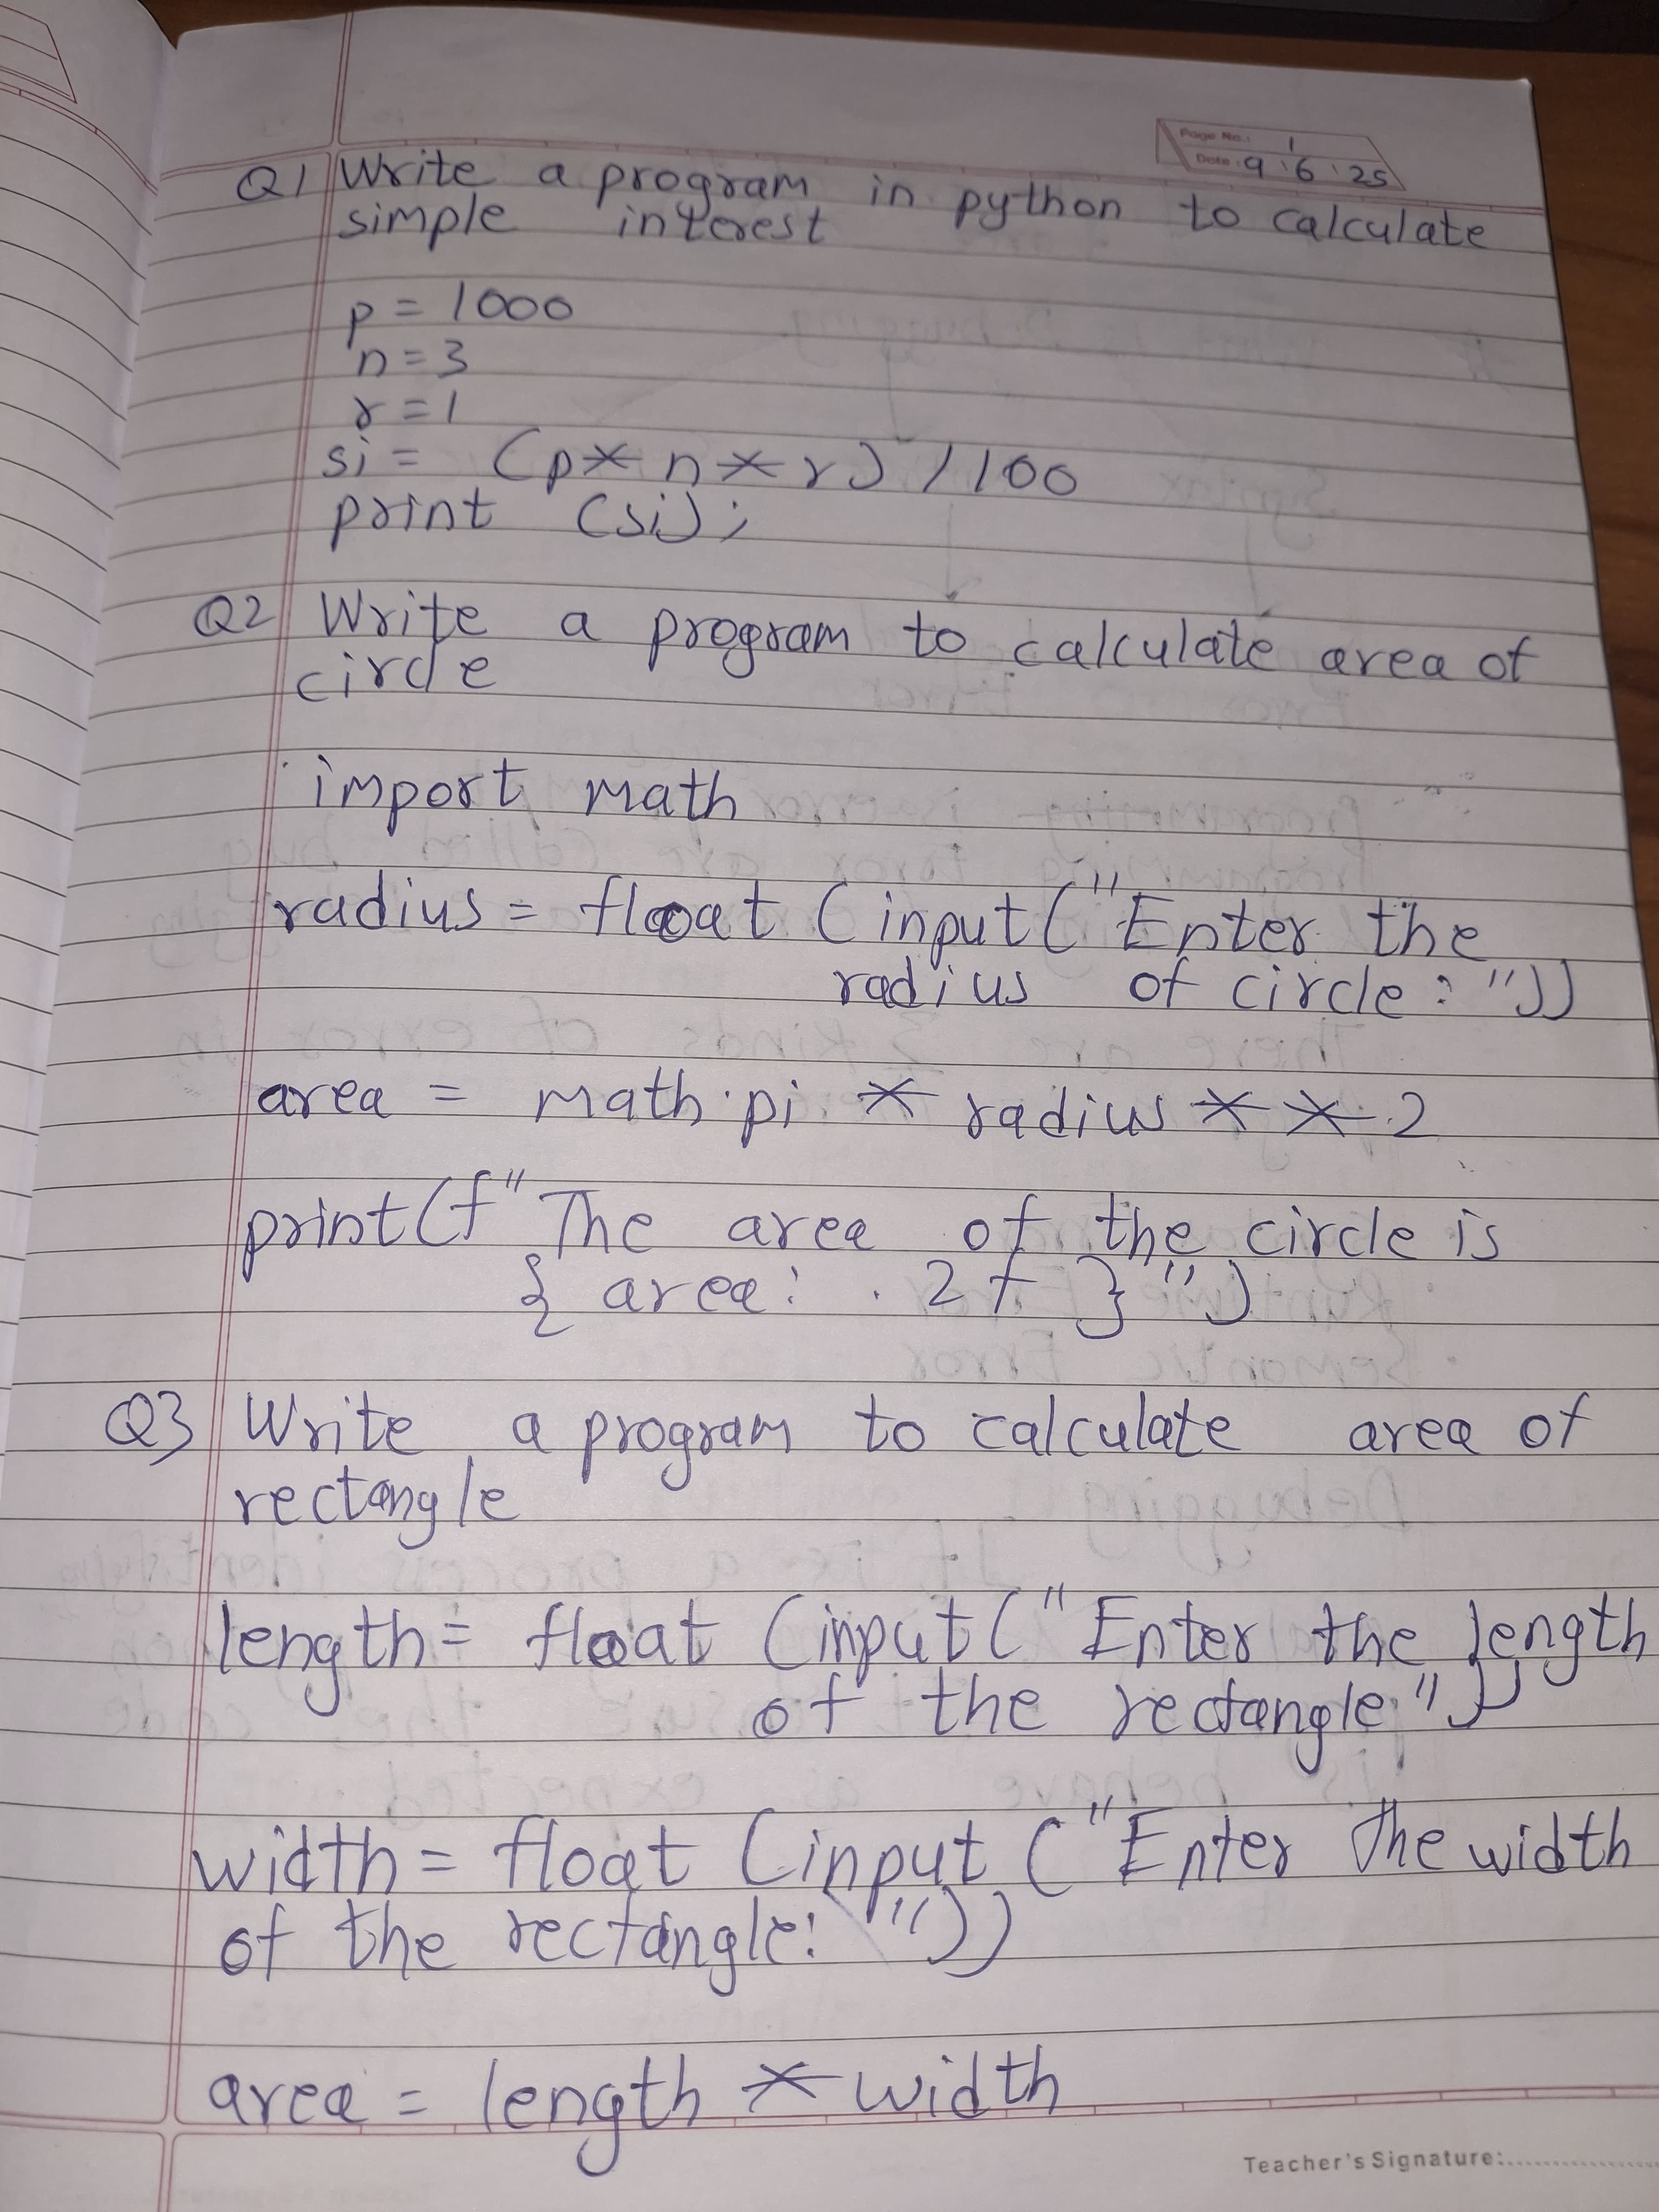 Page No.: 1
Date: 9.6.25
Q1 Write a program in python to calculate
simple interest
p = 1000
n = 3
r = 1
si = (p* n * r) / 100
print (si);
Q2 Write a program to calculate area of
circle
import math
radius = float (input("Enter the
radius of circle : "))
area = math.pi * radius ** 2
print(f" The area of the circle is
{ area: .2f }")
Q3 Write a program to calculate area of
rectangle
length = float (input(" Enter the length
of the rectangle:"))
width = float (input ("Enter The width
of the rectangle: "))
area = length * width
Teacher's Signature: